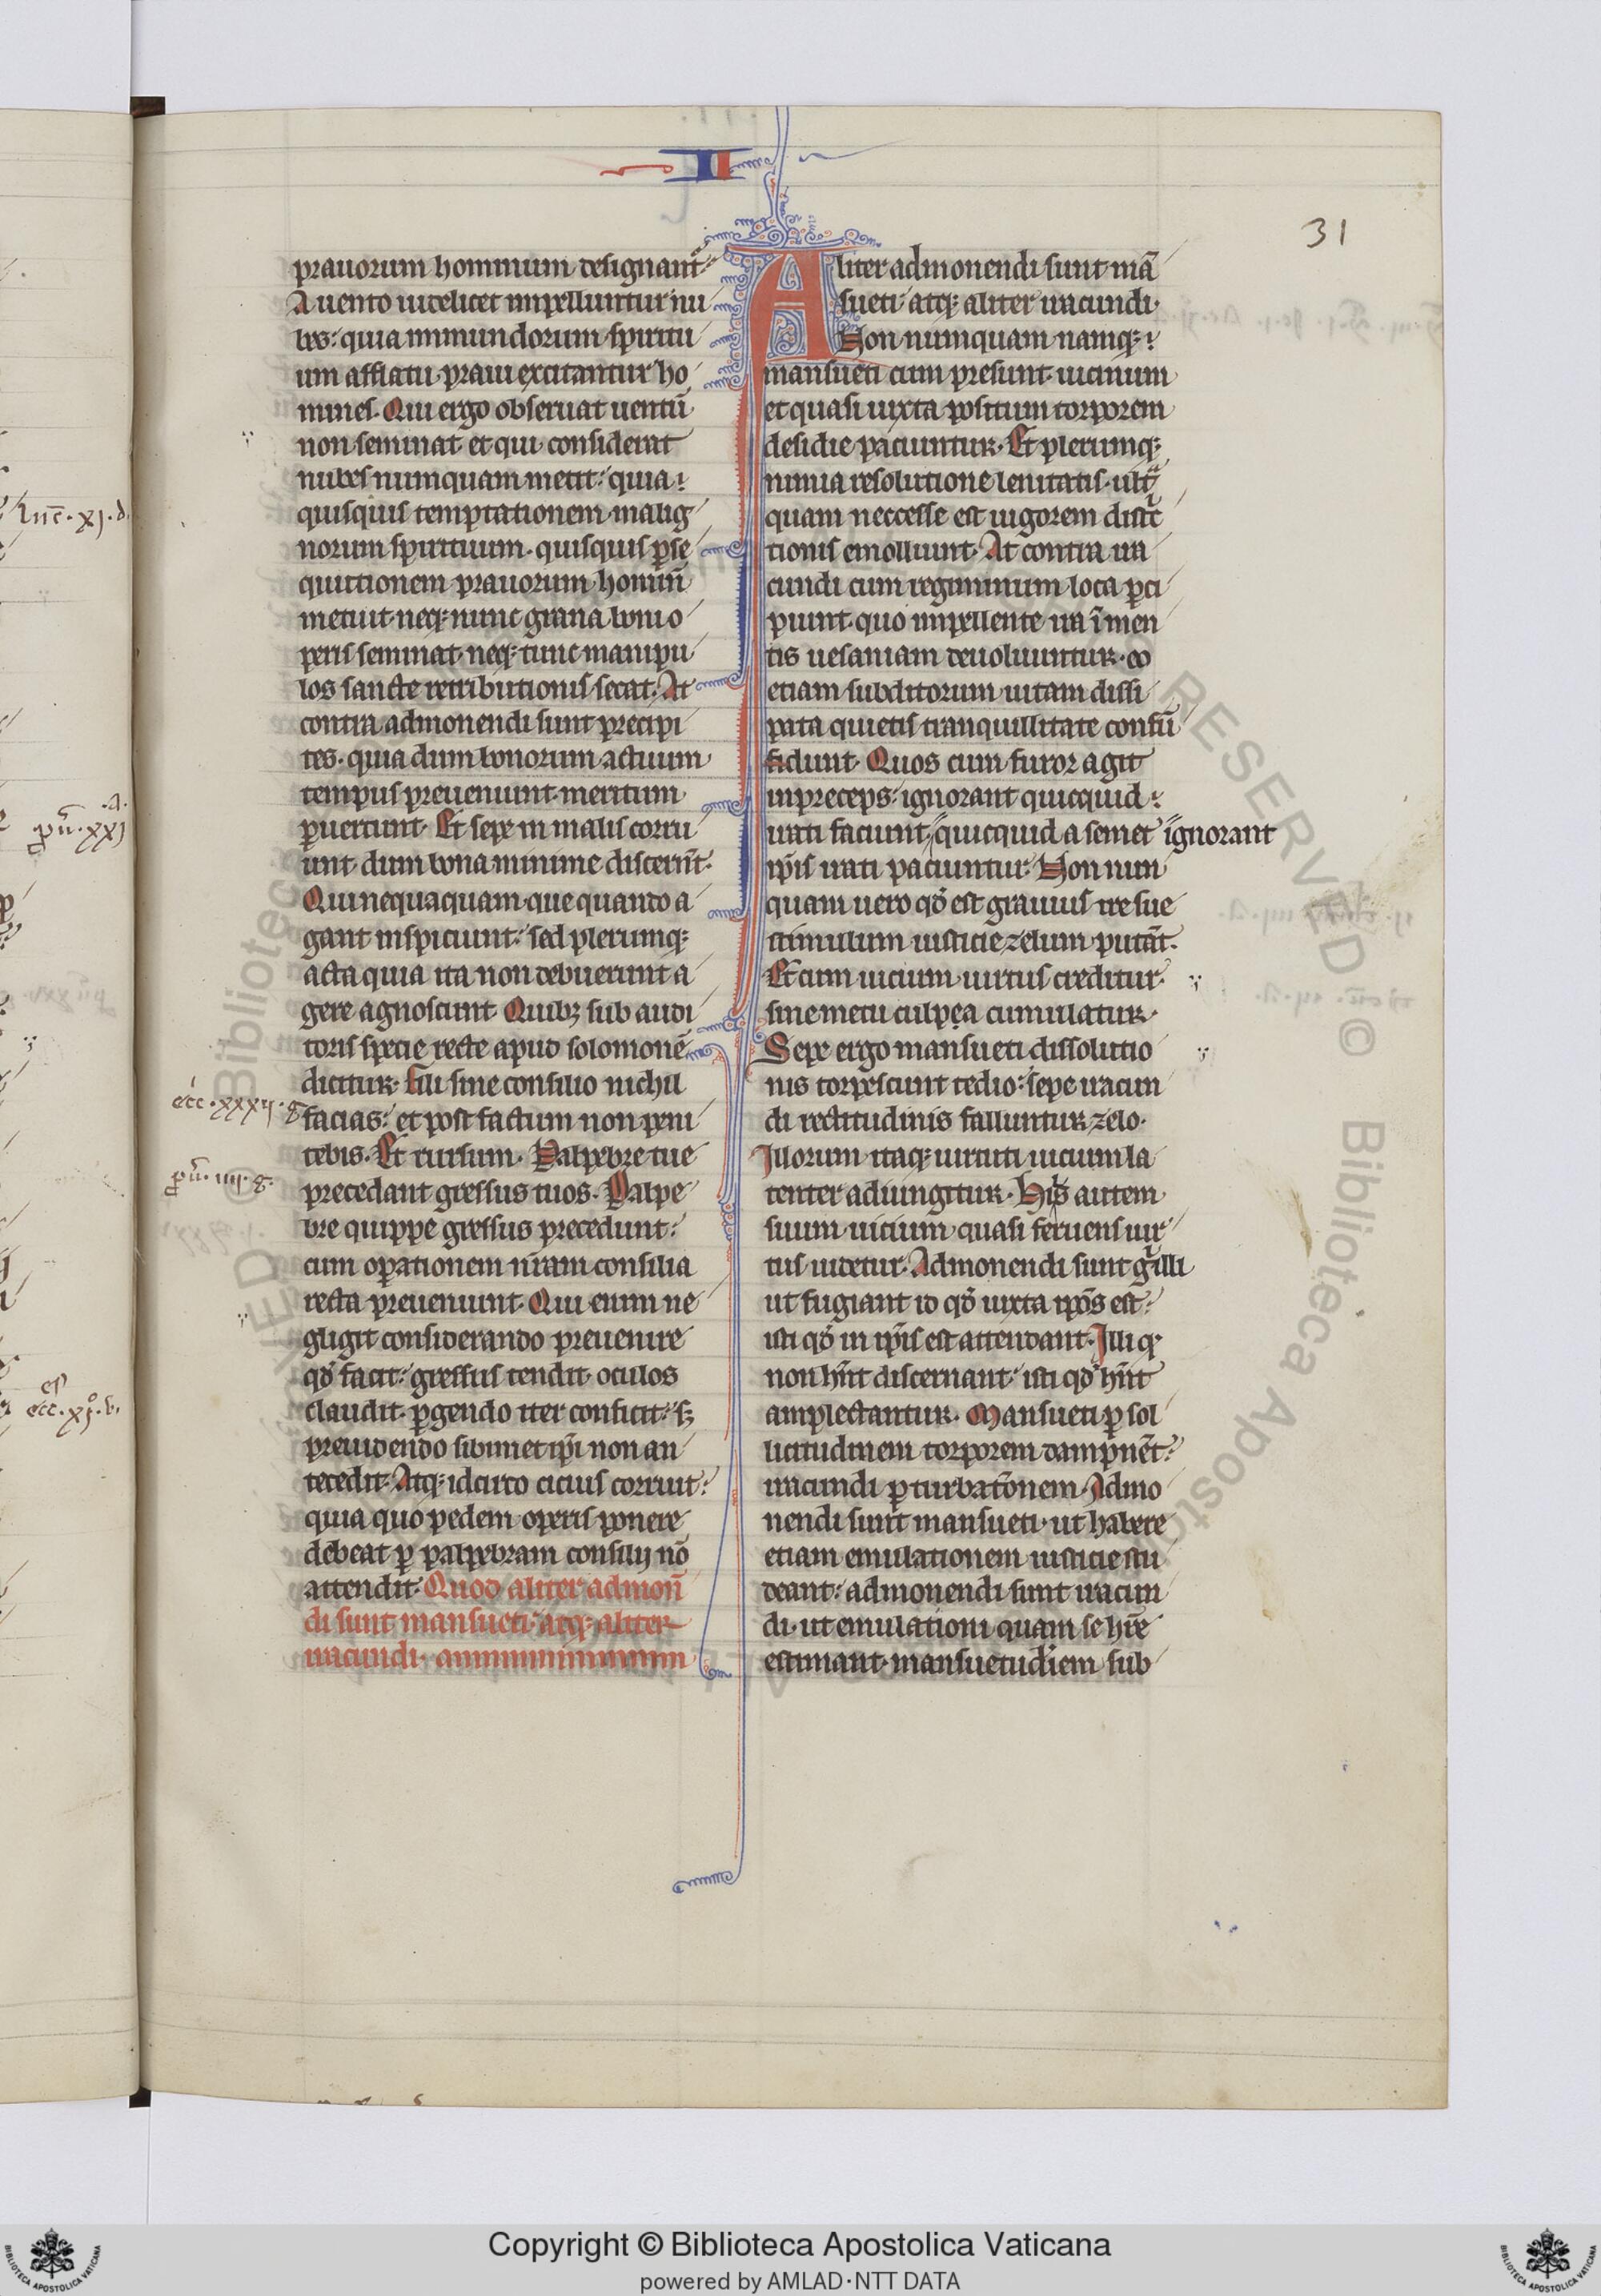 II
31
prauorum hominum designant᷑
A uento uidelicet impelluntur nu
bes: quia inmundorum spiritu
um afflatu praui excitantur ho
mines. Qui ergo obseruat uentū
non seminat et qui considerat
nubes numquam metit: quia
quisquis temptationem malig
norum spirituum. quisquis ꝑse
quutionem prauorum hominū
metuit neqꝫ nunc grana boni o
peris seminat neqꝫ tunc manipu
los sancte retributionis secat. At
contra admonendi sunt precipi
tes. quia dum bonorum actuum
tempus preueniunt meritum
ꝑuertunt. Et sepe in malis corru
unt dum bona minime discernūt.
Qui nequaquam que quando a
gant inspiciunt: sed plerumqꝫ
acta quia ita non debuerunt a
gere agnoscunt. Quibꝫ sub audi
toris specie recte apud solomonē
dicitur. Fili sine consilio nichil
facias: et post factum non peni
tebis. Et rursum. Palpebre tue
precedant gressus tuos. Palpe
bre quippe gressus precedunt:
cum oꝑationem nr̄am consilia
recta preueniunt. Qui enim ne
gligit considerando preuenire
qd̄ facit: gressus tendit oculos
claudit. ꝑgendo iter conficit: sꝫ
preuidendo sibimet ip̄i non an
tecedit. Atqꝫ idcirco cicius corruit:
quia quo pedem operis ponere
debeat ꝑ palpebram consilij nō
attendit. Quod aliter admonē
di sunt mansueti: atqꝫ aliter
iracundi.
Aliter admonendi sunt mā
sueti: atqꝫ aliter iracundi.
Non numquam namqꝫ
mansueti cum presunt uicinum
et quasi iuxta positum torporem
desidie paciuntur. Et plerumqꝫ
nimia resolutione lenitatis. ultᷓ
quam neccesse est uigorem distc̄
tionis emolliunt. At contra ira
cundi cum regiminum loca ꝑci
piunt. quo impellente ira ī men
tis uesaniam deuoluuntur. eo
etiam subditorum uitam dissi
pata quietis tranquillitate confū
dunt. Quos cum furor agit
in preceps: ignorant quicquid
irati faciunt, quicquid a semet ignorant
ip̄is irati paciuntur. Non nun
quam uero qd̄ est grauius ire sue
stimulum iusticie zelum putāt.
Et cum uicium uirtus creditur.
sine metu culpea cumulatur.
Sepe ergo mansueti dissolutio
nis torpescunt tedio: sepe iracun
di rectitudinis falluntur zelo.
Illorum itaqꝫ uirtuti uicium la
tenter adiungitur. His autem
suum uicium quasi feruens uir
tus uidetur. Admonendi sunt gͥ illi
ut fugiant id qd̄ iuxta ip̄os est:
isti qd̄ in ip̄is est attendant. Illi qd̄
non hn̄t discernant: isti qd̄ hn̄t
amplectantur. Mansueti ꝑ sol
licitudinem torporem dampnēt:
iracundi ꝑturbatōnem. Admo
nendi sunt mansueti. ut habere
etiam emulationem iusticie stu
deant: admonendi sunt iracun
di. ut emulationi quam se hr̄e
estimant mansuetudīem sub
ecc̄. xxxij. g
ꝑū. iiij. g.
luc̄. xj. d.
.a.
ꝑū. xxj
ecc̄. xjº. b.
Copyright © Biblioteca Apostolica Vaticana
powered by AMLAD·NTT DATA